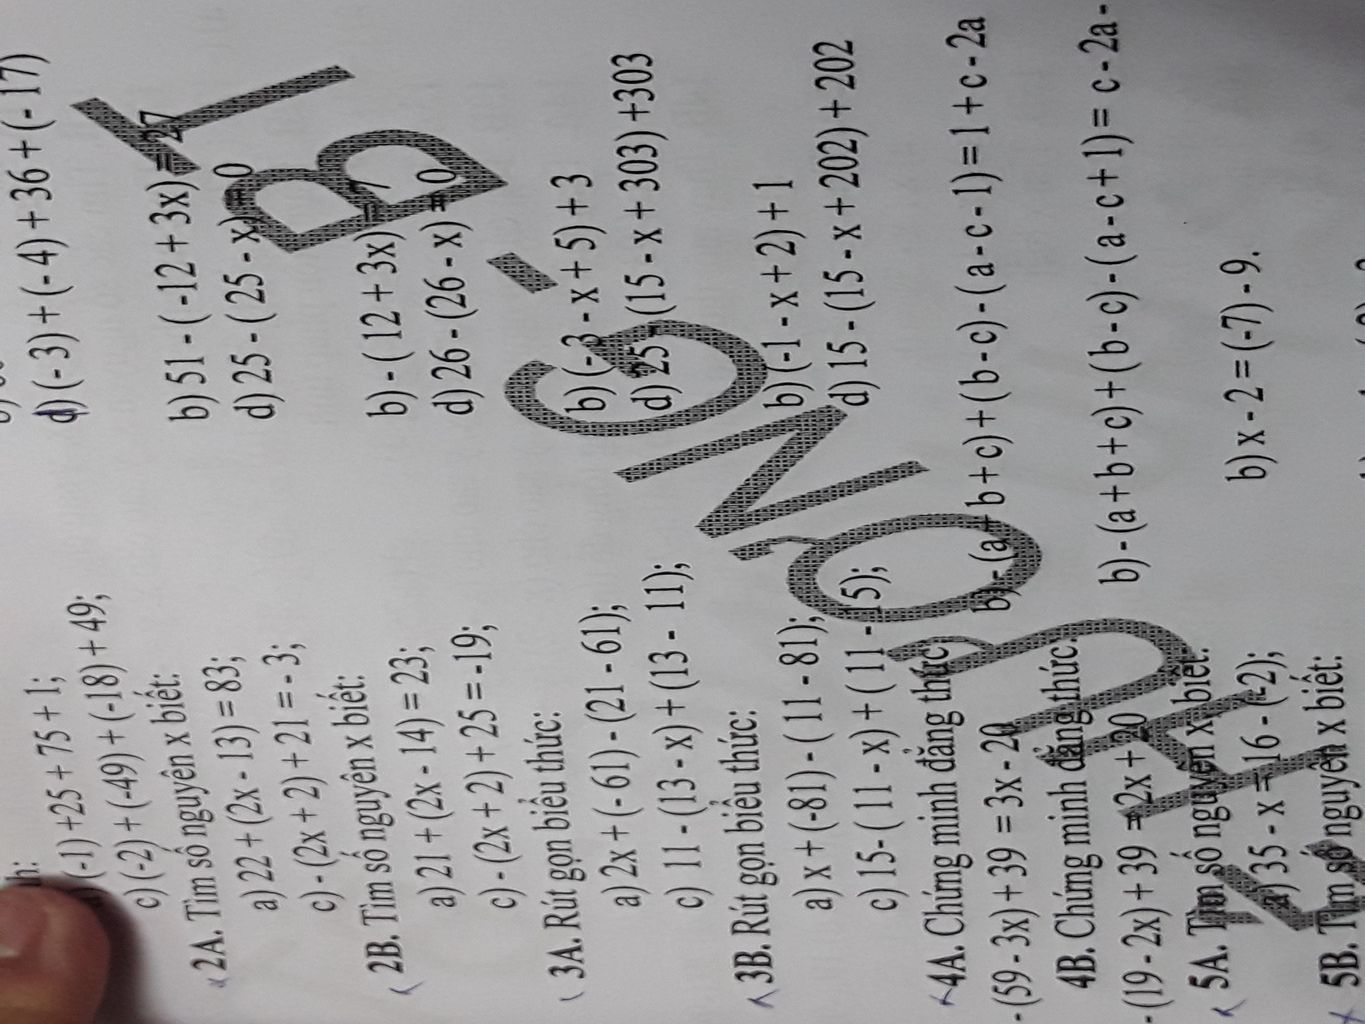 (-1) +25 + 75 + 1;
c) (-2) + (-49) + (-18) + 49;
d) (- 3) + (- 4) + 36 + (- 17)
2A. Tìm số nguyên x biết:
a) 22 + (2x - 13) = 83;
b) 51 - ( -12 + 3x) = 27
c) - (2x + 2) + 21 = - 3;
d) 25 - ( 25 - x) = 0
2B. Tìm số nguyên x biết:
a) 21 + (2x - 14) = 23;
b) - ( 12 + 3x) = 7
c) - (2x + 2) + 25 = -19;
d) 26 - (26 - x) = 0
3A. Rút gọn biểu thức:
a) 2x + (- 61) - (21 - 61);
b) (- 3 - x + 5) + 3
c) 11 - (13 - x) + (13 - 11);
d) 25 - (15 - x + 303) +303
3B. Rút gọn biểu thức:
a) x + (-81) - ( 11 - 81);
b) (-1 - x + 2) + 1
c) 15- ( 11 - x) + ( 11 - 15);
d) 15 - (15 - x + 202) + 202
4A. Chứng minh đẳng thức:
- (59 - 3x) + 39 = 3x - 20
b) - (a + b + c) + ( b - c) - (a - c - 1) = 1 + c - 2a
4B. Chứng minh đẳng thức:
- (19 - 2x) + 39 = 2x + 20
b) - (a + b + c) + ( b - c) - (a - c + 1) = c - 2a -
5A. Tìm số nguyên x biết:
a) 35 - x = 16 - (-2);
b) x - 2 = (-7) - 9.
5B. Tìm số nguyên x biết: